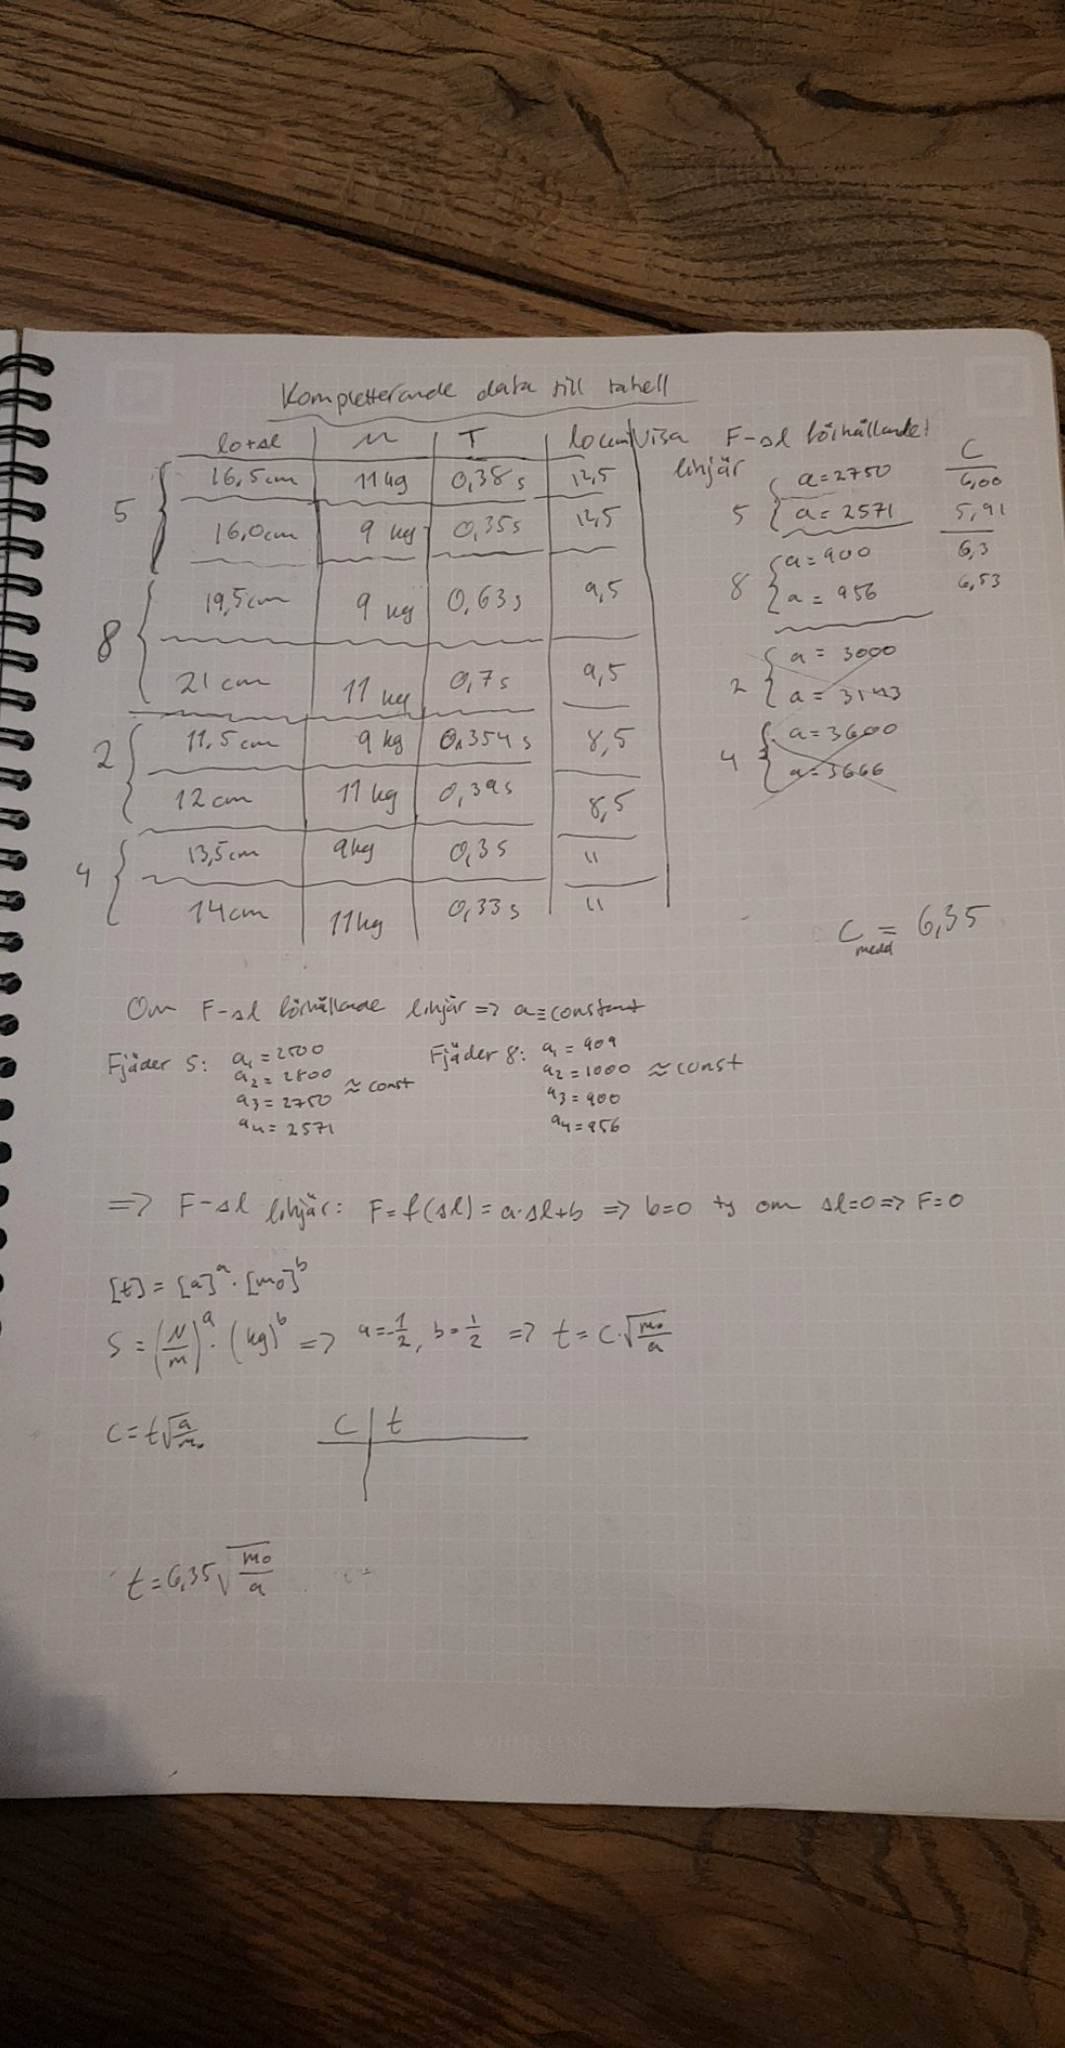 Kompletterande data till tabell
lo+Δl M T lo (cm) Visa F-Δl förhållandet
linjär
C
5 16,5cm 11kg 0,38s 12,5
16,0cm 9 kg 0,35s 12,5
8 19,5cm 9 kg 0,63s 9,5
21 cm 11 kg 0,7s 9,5
2 11,5cm 9 kg 0,354s 8,5
12 cm 11 kg 0,39s 8,5
4 13,5cm 9kg 0,3s 11
14 cm 11kg 0,33s 11
5 a=2750 6,00
a=2571 5,91
8 a=900 6,3
a=956 6,53
2 a=3000
a=3143
4 a=3600
a=3666
Cmedel = 6,35
Om F-Δl förhållande linjär => a=constant
Fjäder 5: a1=2500
a2=2800 ≈ const
a3=2750
a4=2571
Fjäder 8: a1=909
a2=1000 ≈ const
a3=900
a4=956
=> F-Δl linjär: F=f(Δl)=a·Δl+b => b=0 ty om Δl=0 => F=0
[t]=[a]^a·[m0]^b
S=(N/m)^a·(kg)^b => a=-1/2, b=1/2 => t=C·√(m0/a)
C=t√(a/m0)
C t
t=6,35√(m0/a)